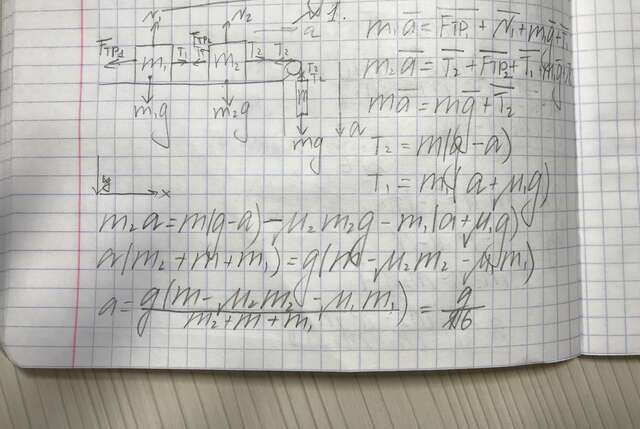 N₁ N₂ 1.
a
Fтр₁ m₁ T₁ T₁ Fтр₂ m₂ T₂ T₂
T₂
T₂
m
m₁g m₂g mg a
m₁a = Fтр₁ + N₁ + m₁g + T₁
m₂a = T₂ + Fтр₂ + T₁
ma = mg + T₂
T₂ = m(g - a)
T₁ = m₁(a + μ₁g)
y x
m₂a = m(g-a) - μ₂m₂g - m₁(a + μ₁g)
a(m₂ + m + m₁) = g(m - μ₂m₂ - μ₁m₁)
a = g(m - μ₂m₂ - μ₁m₁) / m₂ + m + m₁ = g / 6